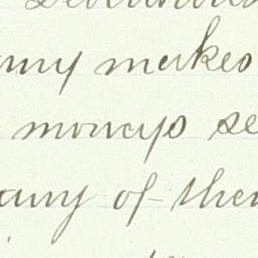 any makes
moneys se
any of them